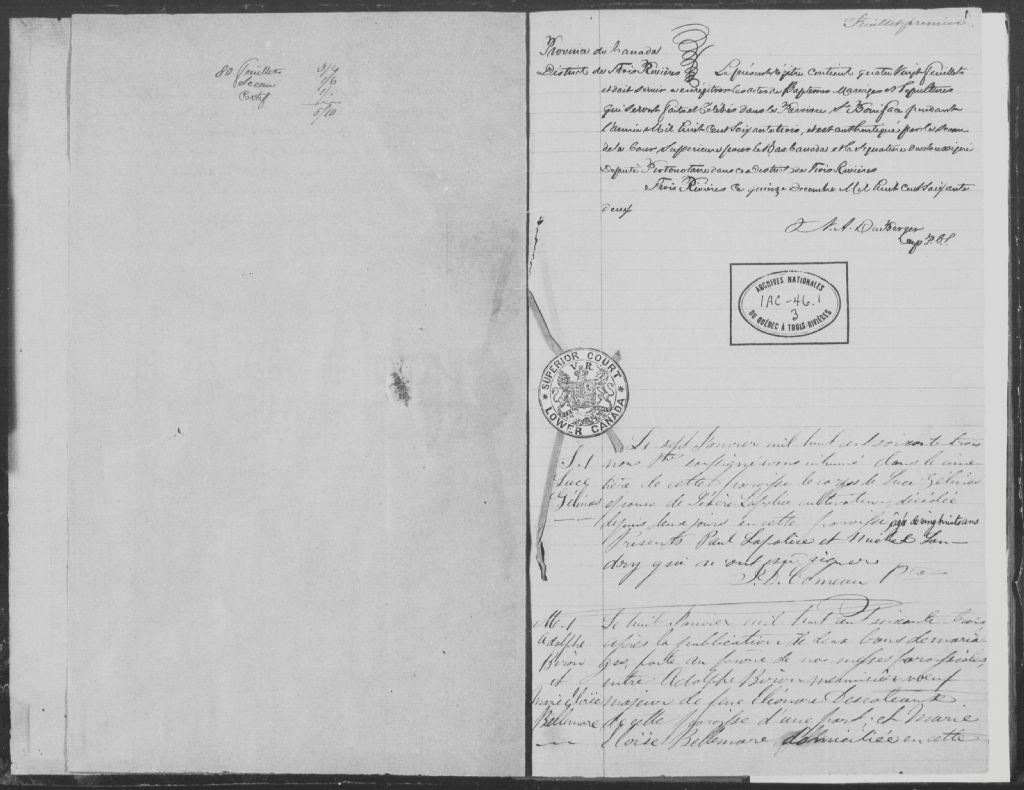 80 Feuillets 3/9
Sceau 1/6
Certif 1/.
Feuillet premier. 1
Province du Canada
District de Trois Rivières Le présent régître contient quatre Vingt feuillets
et doit servir a enregistrer les actes de Baptêmes Mariages et Sepultures
qui seront faits et Célébrés dans la Paroisse St Boniface pendant
l'année Mil huit Cent Soixante trois, et est authentiqué par le sceau
de la Cour Supérieure pour le Bas Canada et la Signature du Soussigné
Député Protonotaire dans ce district de Trois Rivières
Trois Rivières Ce quinze Decembre Mil huit Cent Soixante
deux
ARCHIVES NATIONALES
1AC-46.1
3
DU QUÉBEC À TROIS-RIVIÈRES
SUPERIOR COURT
V R
LOWER CANADA
S. 1
Luce
Gélinas
Le sept Janvier mil huit cent soixante trois
nous Ptre soussigné avons inhumé dans le cime-
tière de cette paroisse le corps de Luce Gélinas
épouse de Lapolice cultivateur, décédée
depuis deux jours en cette paroisse âgée de vingt huit ans
Présents Paul Lapolice et Michel Lan-
dry qui n'ont pu signer
Comeau Ptre
M. 1
Adolphe
Biron
et
Marie Eloise
Bellemare
Le huit Janvier mil huit cent soixante trois
après la publication de deux bans de maria-
ges, faite au prône de nos messes paroissiales
entre Adolphe Biron meunier veuf
majeur de feue Eléonore Descoteaux
de cette paroisse d'une part; et Marie
Eloise Bellemare domiciliée en cette